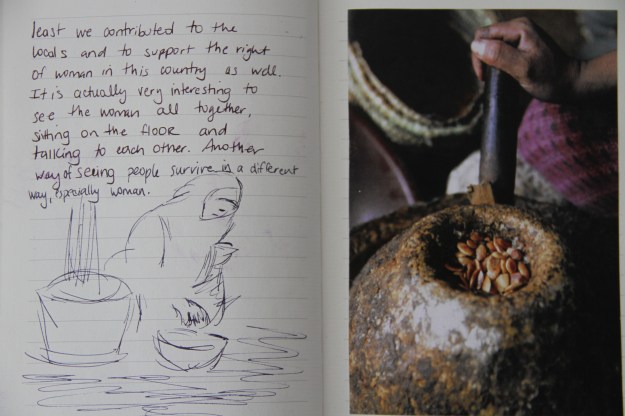 least we contributed to the
locals and to support the right
of woman in this country as well.
It is actually very interesting to
see the woman all together,
sitting on the floor and
talking to each other. Another
way of seeing people survive is a different
way, especially woman.